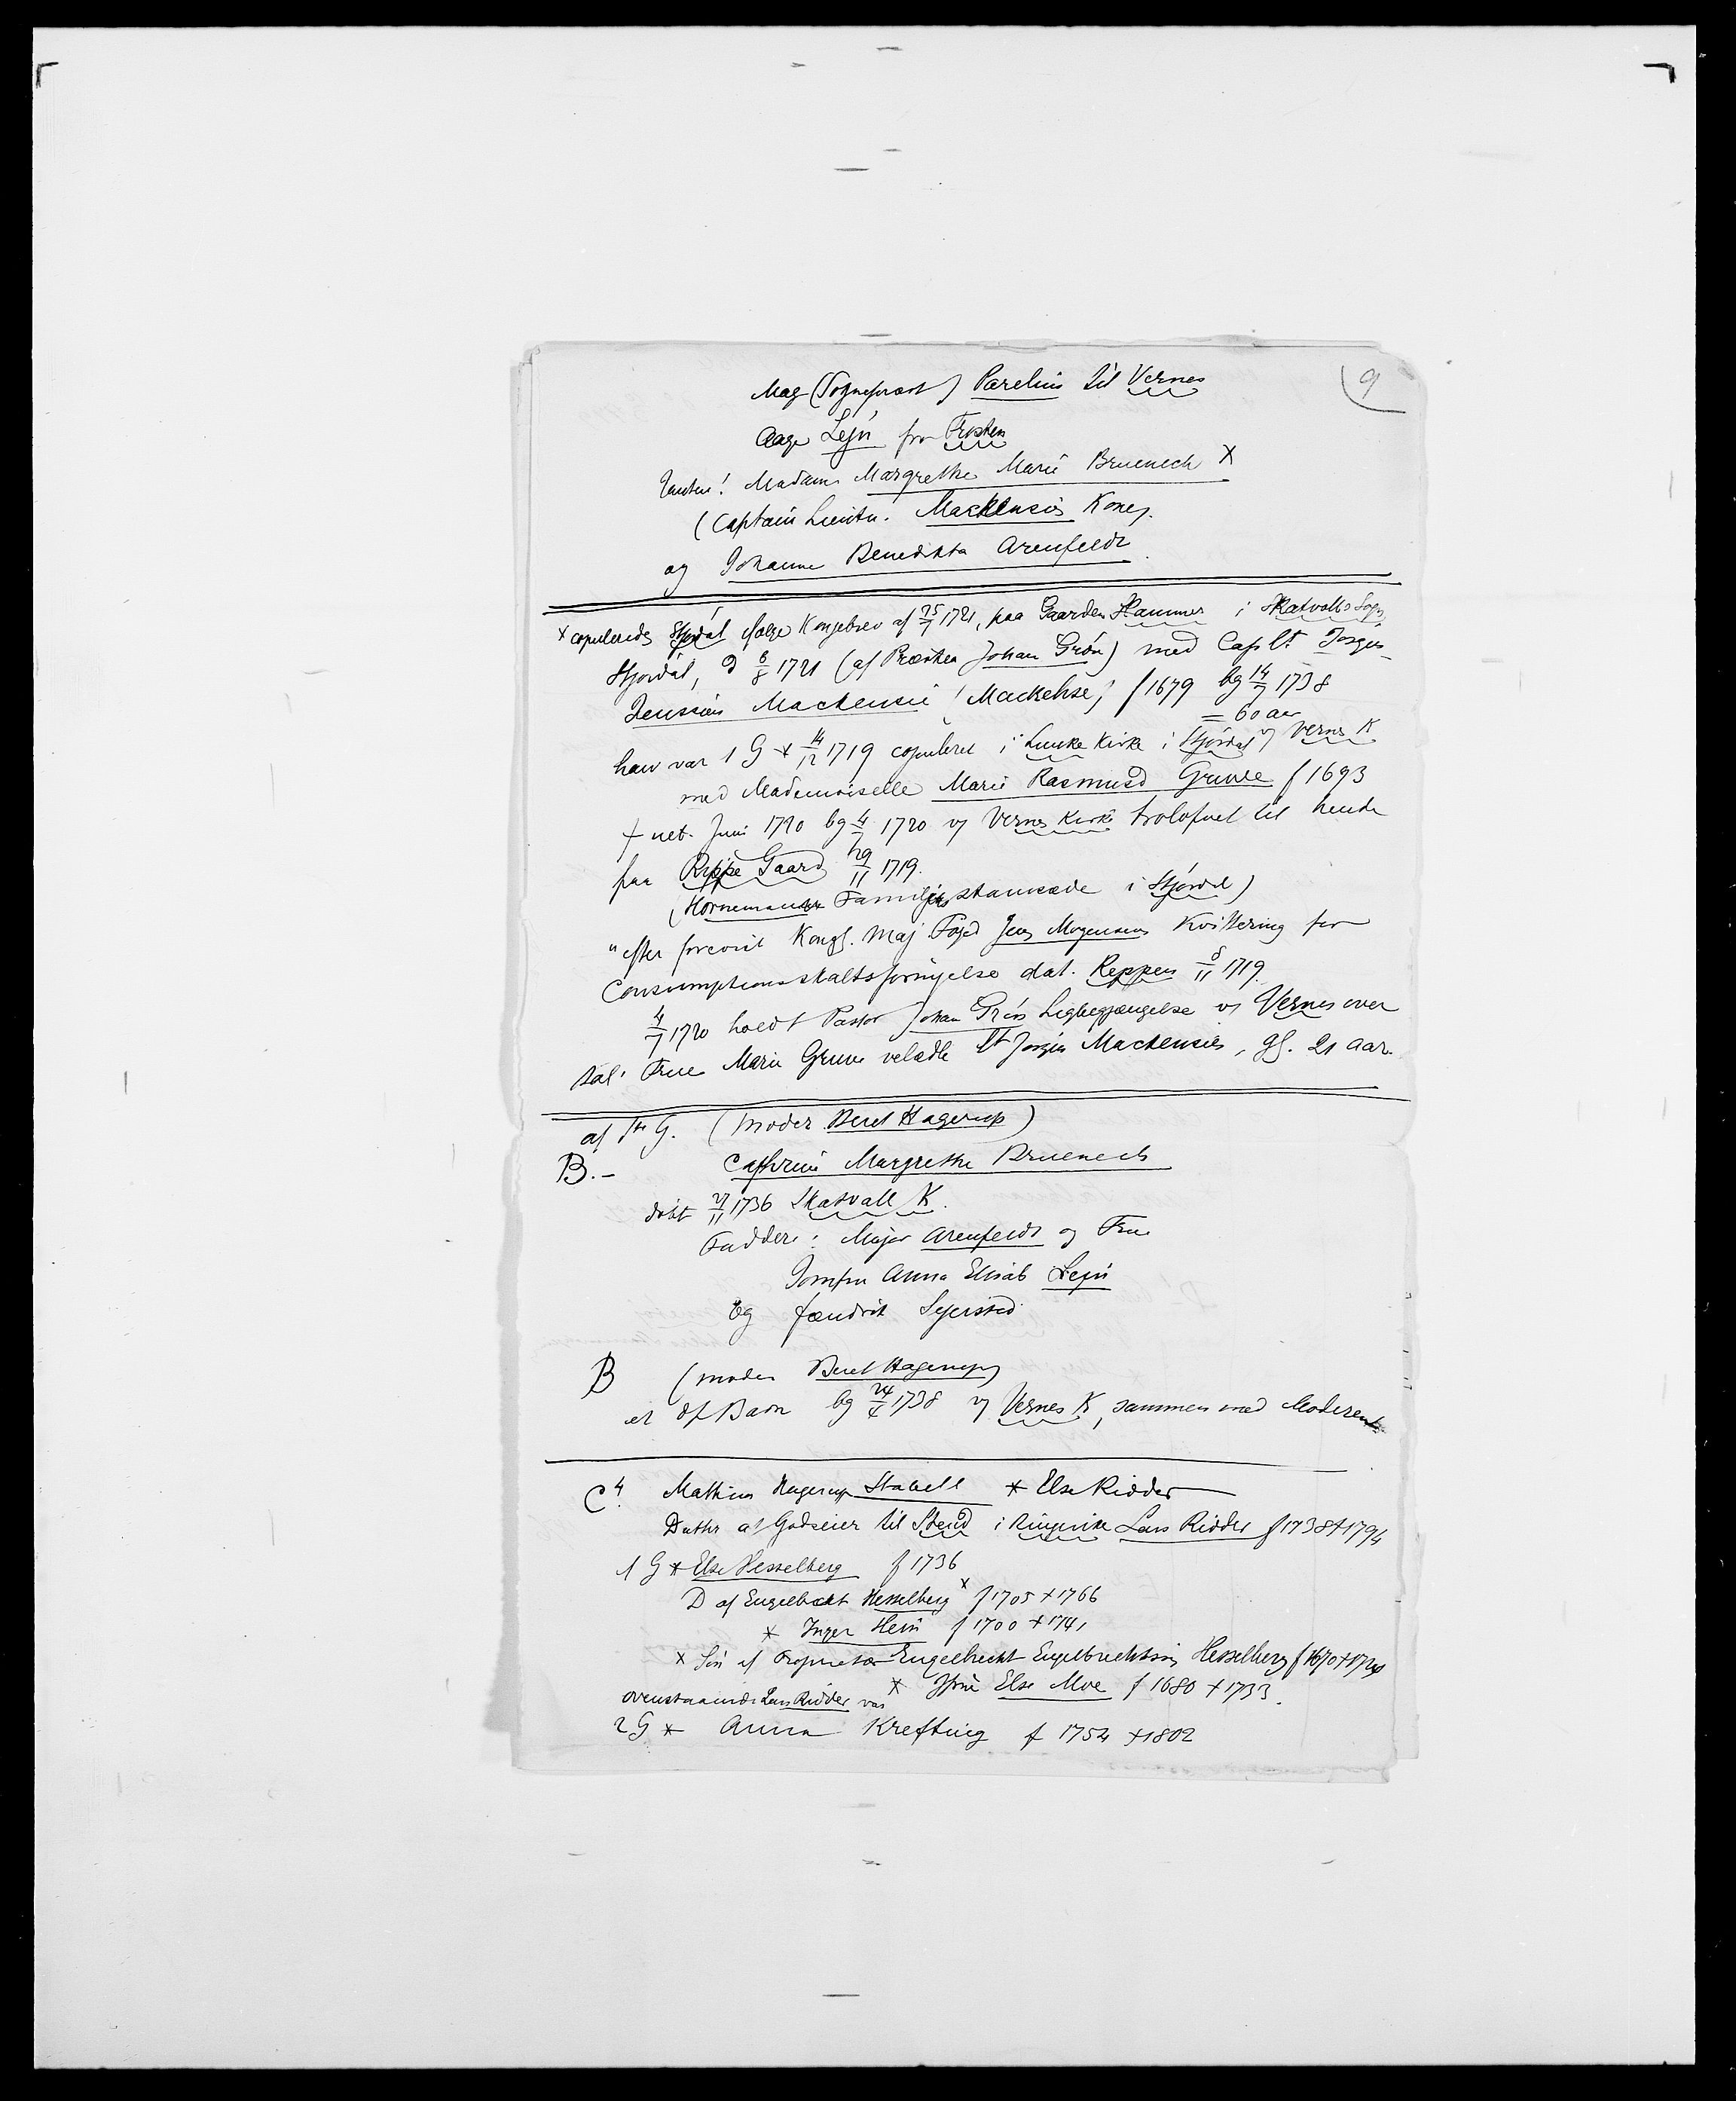 9
Mag (Sognepræst) Parelius til Vernes
Aage Lejn fra Frosten
Madame Margrethe Marie Bruenech X
(Captain Lieutn. Mackensis Kone)
og Johanne Benedikta Arenfeldt
x copulerede Stjørdal ifølge Kongebrev af 25/7 1721, paa Gaarden Hammer i Skatvolls Sogn
Stjørdal, d 6/8 1721 (af Præsten Johan Grøn) med Cap Lt Jørgen
Mackensie (Mackehse) f 1679 bg 14/7 1738
= 60 aar
han var 1 G * 14/12 1719 copuleret i Lunke Kirke i Stjørdal v Vernes K
med Mademoiselle Marie Rasmusd Gruve f 1693
† Juni 1720 bg 4/7 1720 v Vernes Kirke trolofvet til hende
paa Reppe Gaard 29/11 1719.
(Hornemanske Familjes stamsæde i Stjørdal)
"efter forevist Kongl. Maj Foged Jens Mogensens Kvittering for
Consumptionsskatts fornøjelse dat. Reppen 8/11 1719.
4/7 1720 holdt Pastor Johan Grøn Ligbegjængelse v Vernes over
Sal. Frue Marie Gruve velædle Lt Jørgen Mackensies, gl. 21 aar.
af 1te G. (Moder Beret Hagerup)
B.- Cathrine Margrethe Bruenech
døbt 27/11 1736 Skatvall K.
Faddere: Major Arenfeldt og Frue
Jomfru Anna Elisab Lejn
Og fændrik Sejersted
B (moder Beret Hagerup)
et df Barn bg 24/4 1738 v Vernes K, sammen med Moderen
C 4. Mathias Hagerup Stabell * Else Ridder
Datter af Godseier til Steud i Ringerike Lars Ridder f 1738 † 1794
1 G * Else Hesselberg f 1736
D af Engelbrekt Hesselberg x f 1705 † 1766
* Inger Hein f 1700 † 1741
x Søn af Proprietær Engelbrecht Engelbrechtsen Hesselberg f 1670 †
* Else Moe f 1680 † 1733.
ovenstaaende Lars Ridder var
2 G * Anna Krefting f 1754 † 1802